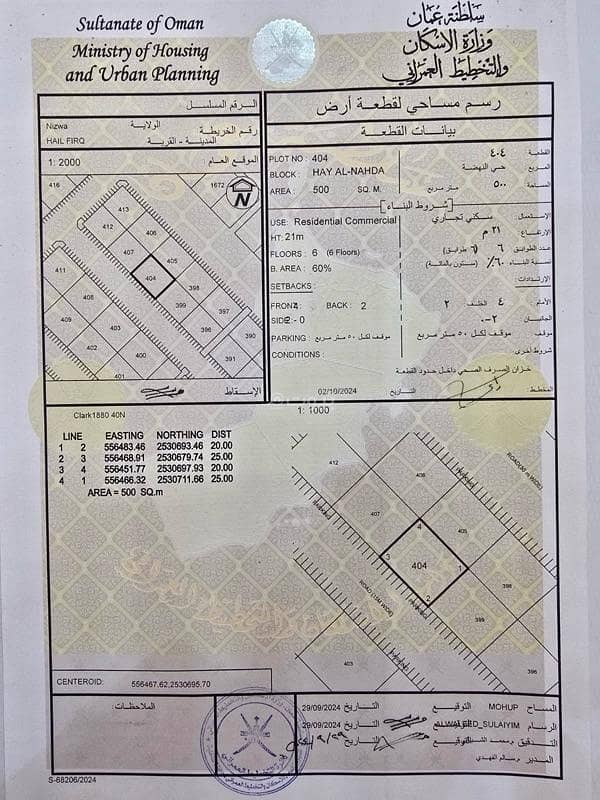 Sultanate of Oman
Ministry of Housing
and Urban Planning
سلطنة عمان
وزارة الإسكان
والتخطيط العمراني
الرقم المسلسل
Nizwa
الولاية
رقم الخريطة
HAIL FIRQ
المدينة - القرية
1: 2000
الموقع العام
416
1672
N
413
412
406
407
405
411
404
398
408
399
409
403
397
410
402
396
390
400
391
401
الإسقاط
رسم مساحي لقطعة أرض
بيانات القطعة
PLOT NO : 404
٤٠٤
القطعة
BLOCK : HAY AL-NAHDA
حي النهضة
المربع
AREA : 500 SQ. M.
متر مربع
٥٠٠
المساحة
شروط البناء
USE: Residential Commercial
سكني تجاري
الإستعمال
HT: 21m
٢١ م
الإرتفاع
FLOORS : 6 (6 Floors)
٦ (٦ طوابق)
عدد الطوابق
B. AREA : 60%
٦٠٪ (ستون بالمائة)
نسبة البناء
SETBACKS :
الإرتدادات
FRONT: 4 BACK : 2
الأمام ٤ الخلف ٢
SIDE: 2 - 0
الجانبان ٢-٠
PARKING : موقف لكل ٥٠ متر مربع
موقف موقف لكل ٥٠ متر مربع
CONDITIONS :
شروط أخرى
خزان الصرف الصحي داخل حدود القطعة
02/10/2024
التاريخ
المخطط
Clark1880 40N
1: 1000
LINE EASTING NORTHING DIST
1 2 556483.46 2530693.46 20.00
2 3 556468.91 2530679.74 25.00
3 4 556451.77 2530697.93 20.00
4 1 556466.32 2530711.66 25.00
AREA = 500 SQ.m
412
406
ROAD(20 m WIDE)
407
405
4
3
404
1
2
398
399
ROAD (15M WIDE)
403
396
CENTEROID: 556467.62,2530695.70
الملاحظات:
29/09/2024
التاريخ
التوقيع
MOHUP
المساح
29/09/2024
التاريخ
ALWALEED_SULAIYIM
الرسام
التاريخ
التوقيع
التدقيق
م.سالم الفهدي
المدير
S-68206/2024